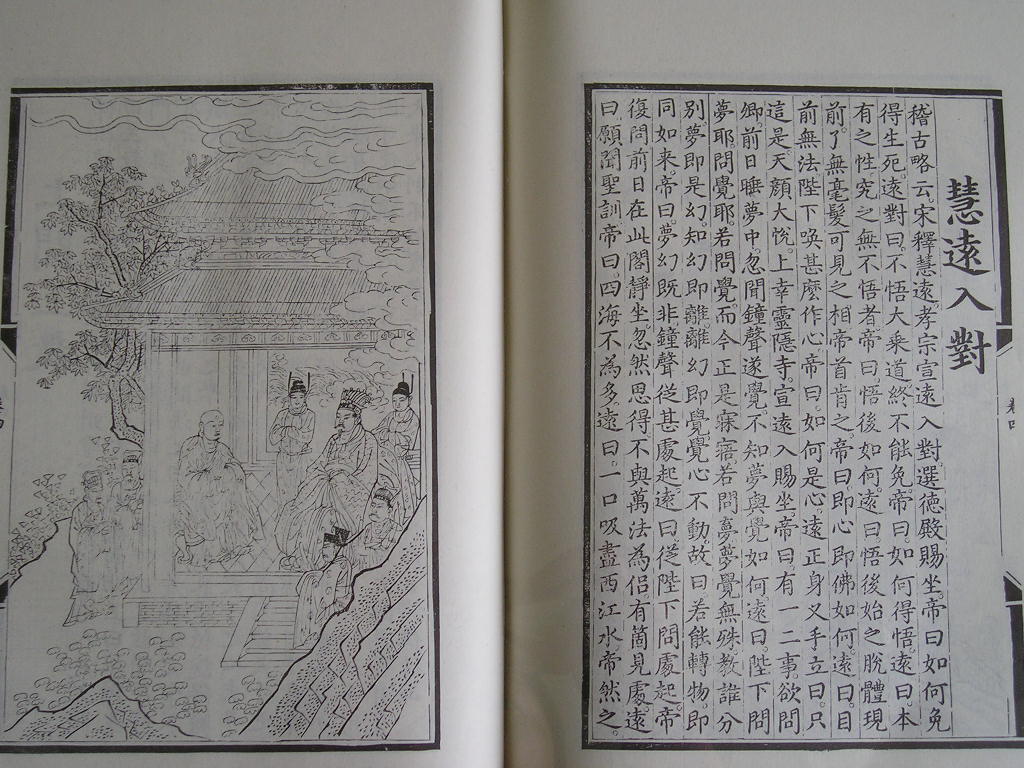 慧遠入對
稽古略云。宋釋慧遠。孝宗宣遠入對選德殿賜坐。帝曰如何免
得生死。遠對曰。不悟大乘道終不能免。帝曰如何得悟。遠曰本
有之性究之無不悟者。帝曰。悟後如何。遠曰悟後始之脫體現
前。了無毫髮可見之相。帝首肯之。帝曰即心即佛如何。遠曰。目
前無法陛下喚甚麼作心。帝曰。如何是心。遠正身叉手立曰只
這是。天顏大悅。上幸靈隱寺。宣遠入賜坐。帝曰。有一二事欲問
卿。前日睡夢中忽聞鐘聲遂覺。不知夢與覺如何。遠曰。陛下問
夢耶。問覺耶。若問覺。而今正是寐寤。若問夢。夢覺無殊。教誰分
別。夢即是幻。知幻即離。離幻即覺。覺心不動。故曰若能轉物。即
同如來。帝曰。夢幻既非。鐘聲從甚處起。遠曰。從陛下問處起。帝
復問。前日在此閣靜坐。忽然思得不與萬法為侶。有箇見處。遠
曰願聞聖訓。帝曰。四海不為多。遠曰。一口吸盡西江水。帝然之。
卷四